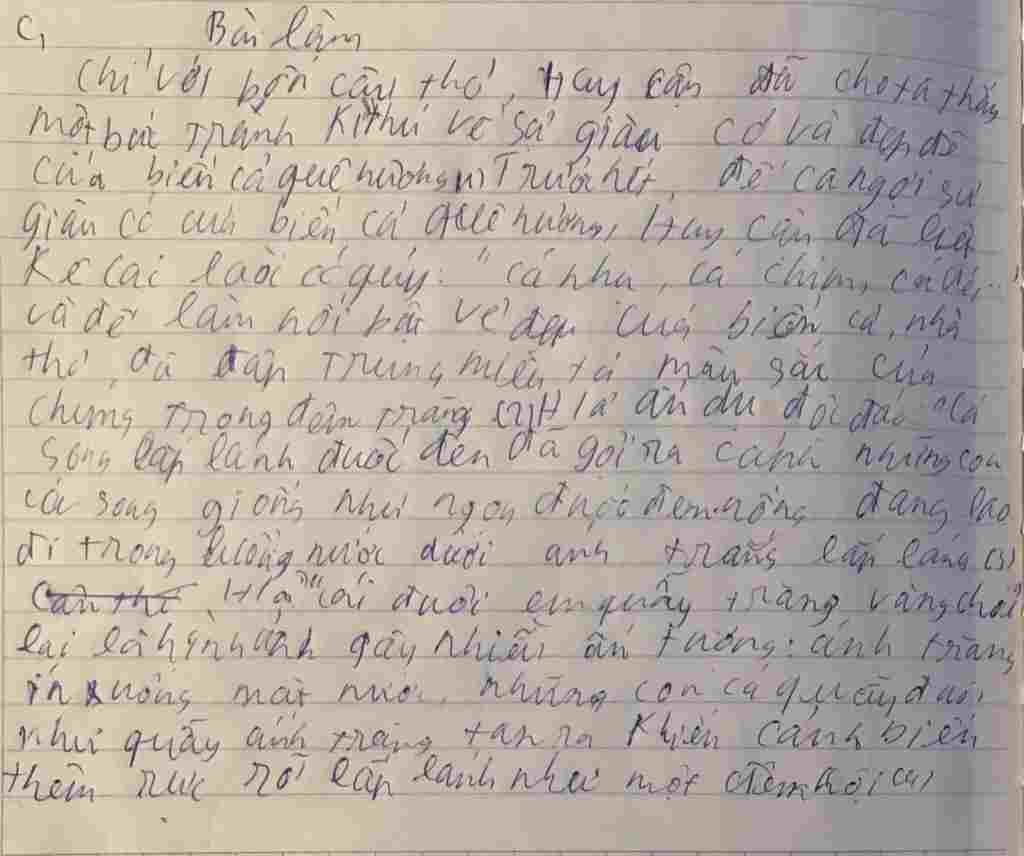 C, Bài làm
Chỉ với bốn câu thơ, Huy cận đã cho ta thấy
một bức tranh Kì thú về sự giàu có và đẹp đẽ
của biển cả quê hương (1) Trước hết, để ca ngợi sự
giàu có của biển cả quê hương, Huy cận đã liệt
kê các loài cá quý: "cá nhụ, cá chim, cá đé,"
và để làm nổi bật vẻ đẹp của biển cả, nhà
thơ, đã tập trung miêu tả màu sắc của
chúng trong đêm trăng (2) H/a ẩn dụ độc đáo "cá
song lấp lánh đuốc đen đã gợi ra cảnh những con
cá song giống như ngọn đuốc đen hồng đang lao
đi trong luồng nước dưới ánh trăng lấp láng (3)
H/a "cái đuôi em quẫy trăng vàng choé"
lại là hình ảnh gây nhiều ấn tượng: ánh trăng
in xuống mặt nước, những con cá quẫy đuôi
như quẫy ánh trăng tan ra Khiến cảnh biển
thêm rực rỡ lấp lánh như một đêm hội (4)